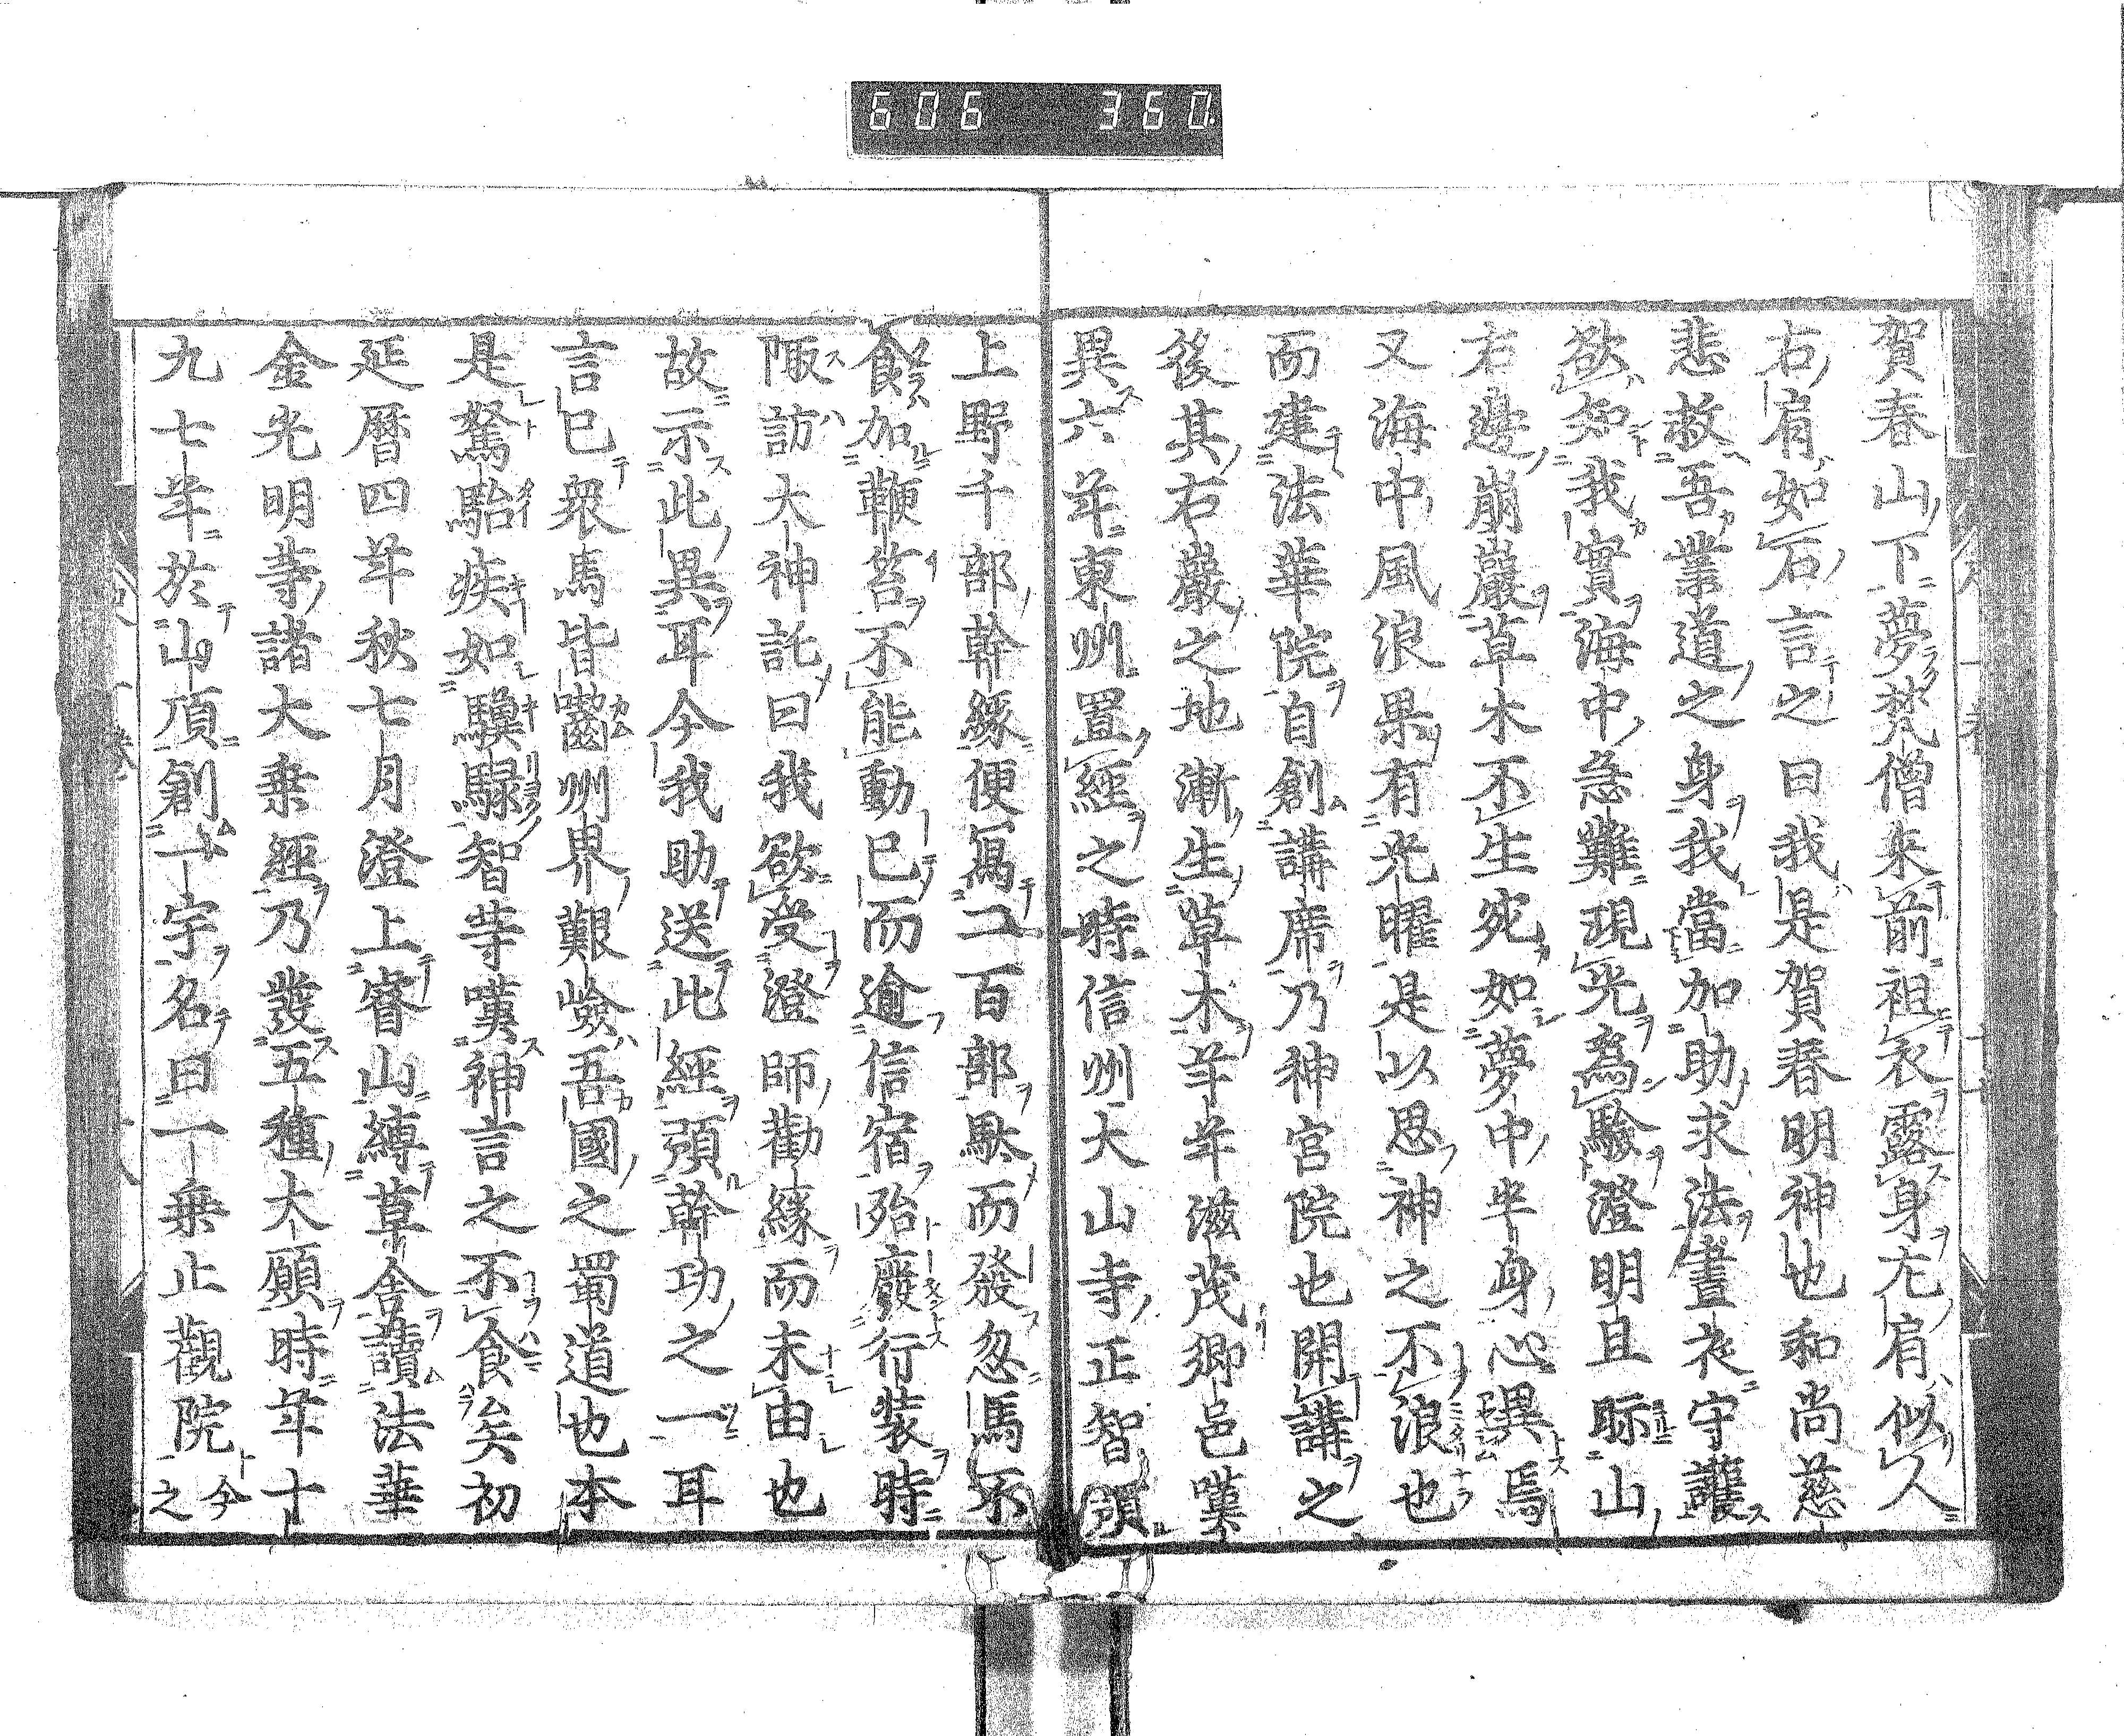 606 360
賀春山下夢梵僧来前袒衣露身左肩似人
右肩如石言之曰我是賀春明神也和尚慈
悲救吾業道之身我當加助求法晝夜守護
欲知我實海中急難現光為驗澄明旦眎山
右邊崩巖草木不生宛如夢中半身心異焉
又海中風浪果有光曜是以思神之不浪也
而建法華院自創講席乃神宮院也開講之
後其右巖之地漸生草木年年滋茂卿邑嘆
異六年東州置經之時信州大山寺正智領
上野千部幹縁便寫二百部駄而發忽馬不
食加鞭笞不能動已而逾信宿殆廢行装時
陬訪大神託曰我欲受澄師勸縁而末由也
故示此異耳今我助送此經預幹功之一耳
言已衆馬皆嚙州界艱嶮吾國之蜀道也本
是駑駘疾如驥騄智等嘆神言之不食矣初
延暦四年秋七月澄上睿山縛草舎讀法華
金光明等諸大乗經乃發五種大願時年十
九七年於山頂創一宇名曰一乗止觀院今之